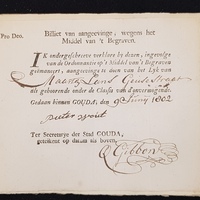 Pro Deo.
Billiet van aangeevinge, wegens het
Middel van 't Begraven.
IK ondergeschreve verklare by dezen, ingevolge
van de Ordonnantie op 't Middel van 't Begraven
geëmaneert, aangevinge te doen van het Lyk van
als gehoorende onder de Classis van d'onvermogende.
Gedaan binnen GOUDA, den 9 Juny 1802
pieter
Ter Secretarye der Stad GOUDA,
geteikent op datum als boven,